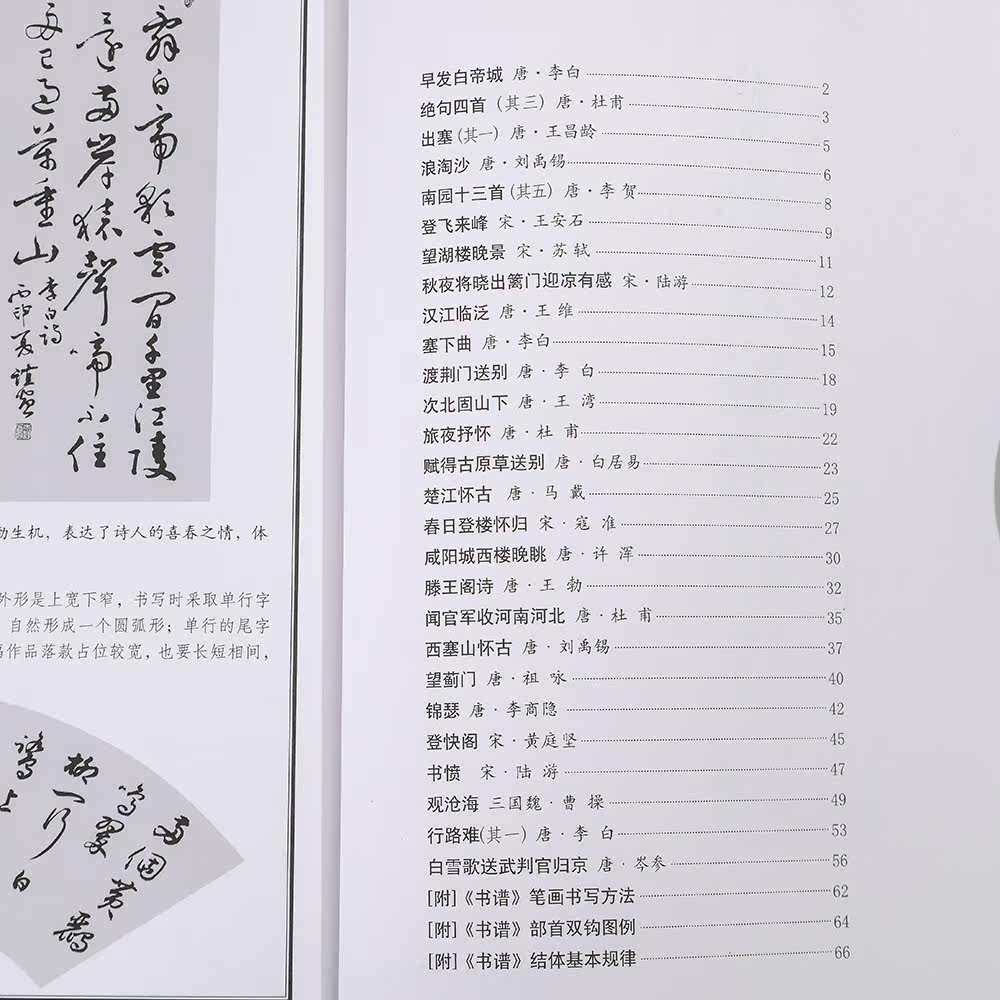 辭白帝彩雲間千里江陵
還兩岸猿聲啼不住
舟已過萬重山
李白詩
丙申夏
勃生机，表达了诗人的喜春之情，体
外形是上宽下窄，书写时采取单行字
自然形成一个圆弧形；单行的尾字
幅作品落款占位较宽，也要长短相间，
兩個黃鸝
鳴翠
柳一行
白
鷺上
早发白帝城 唐·李白 2
绝句四首（其三）唐·杜甫 3
出塞(其一) 唐·王昌龄 5
浪淘沙 唐·刘禹锡 6
南园十三首(其五) 唐·李贺 8
登飞来峰 宋·王安石 9
望湖楼晚景 宋·苏轼 11
秋夜将晓出篱门迎凉有感 宋·陆游 12
汉江临泛 唐·王维 14
塞下曲 唐·李白 15
渡荆门送别 唐·李白 18
次北固山下 唐·王湾 19
旅夜抒怀 唐·杜甫 22
赋得古原草送别 唐·白居易 23
楚江怀古 唐·马戴 25
春日登楼怀归 宋·寇准 27
咸阳城西楼晚眺 唐·许浑 30
滕王阁诗 唐·王勃 32
闻官军收河南河北 唐·杜甫 35
西塞山怀古 唐·刘禹锡 37
望蓟门 唐·祖咏 40
锦瑟 唐·李商隐 42
登快阁 宋·黄庭坚 45
书愤 宋·陆游 47
观沧海 三国魏·曹操 49
行路难(其一) 唐·李白 53
白雪歌送武判官归京 唐·岑参 56
[附]《书谱》笔画书写方法 62
[附]《书谱》部首双钩图例 64
[附]《书谱》结体基本规律 66